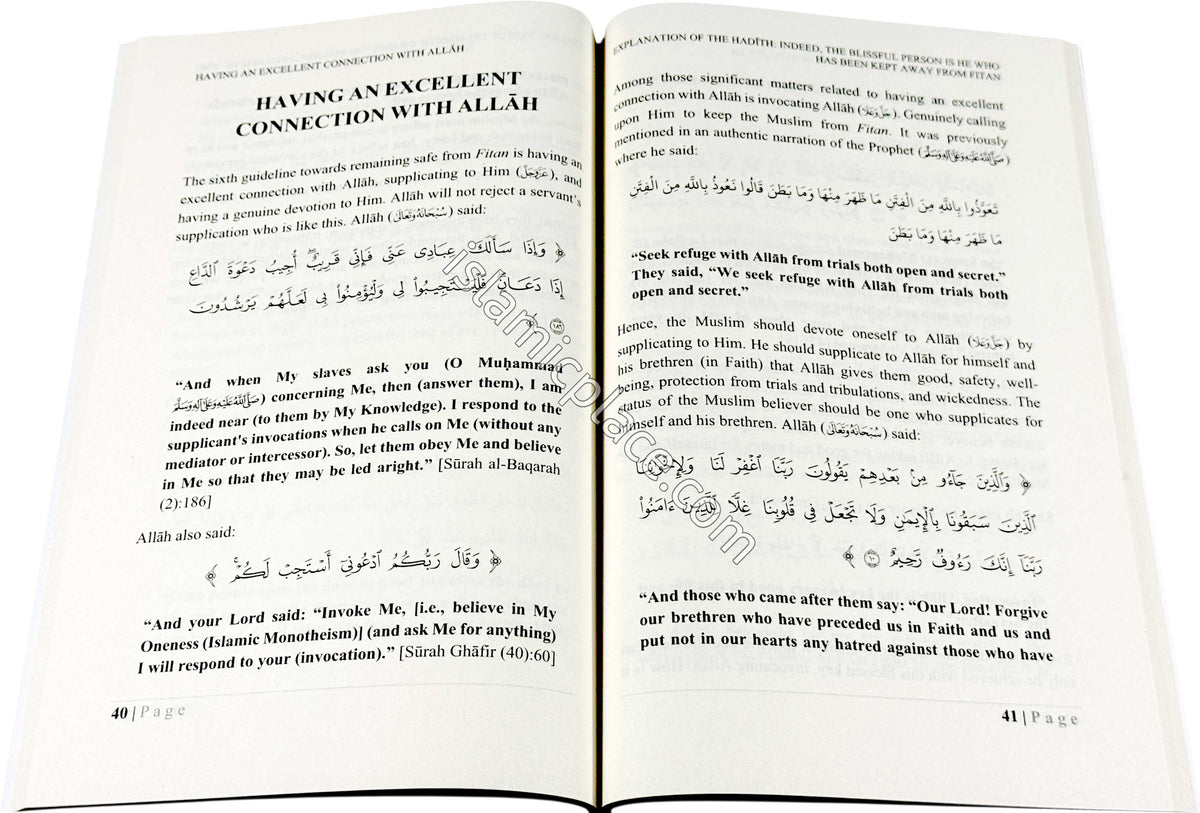 HAVING AN EXCELLENT CONNECTION WITH ALLĀH
HAVING AN EXCELLENT
CONNECTION WITH ALLĀH
The sixth guideline towards remaining safe from Fitan is having an
excellent connection with Allāh, supplicating to Him (عَزَّوَجَلَّ), and
having a genuine devotion to Him. Allāh will not reject a servant's
supplication who is like this. Allāh (سُبْحَانَهُ وَتَعَالَى) said:
﴿ وَإِذَا سَأَلَكَ عِبَادِى عَنِّى فَإِنِّى قَرِيبٌ ۖ أُجِيبُ دَعْوَةَ ٱلدَّاعِ
إِذَا دَعَانِ ۖ فَلْيَسْتَجِيبُوا۟ لِى وَلْيُؤْمِنُوا۟ بِى لَعَلَّهُمْ يَرْشُدُونَ
١٨٦ ﴾
“And when My slaves ask you (O Muḥammad
صَلَّى اللَّهُ عَلَيْهِ وَعَلَى آلِهِ وَسَلَّمَ) concerning Me, then (answer them), I am
indeed near (to them by My Knowledge). I respond to the
supplicant's invocations when he calls on Me (without any
mediator or intercessor). So, let them obey Me and believe
in Me so that they may be led aright.” [Sūrah al-Baqarah
(2):186]
Allāh also said:
﴿ وَقَالَ رَبُّكُمُ ٱدْعُونِىٓ أَسْتَجِبْ لَكُمْ ۚ ﴾
“And your Lord said: “Invoke Me, [i.e., believe in My
Oneness (Islamic Monotheism)] (and ask Me for anything)
I will respond to your (invocation).” [Sūrah Ghāfir (40):60]
40 | Page
EXPLANATION OF THE HADĪTH: INDEED, THE BLISSFUL PERSON IS HE WHO
HAS BEEN KEPT AWAY FROM FITAN
Among those significant matters related to having an excellent
connection with Allāh is invocating Allāh (جَلَّ وَعَلَا). Genuinely calling
upon Him to keep the Muslim from Fitan. It was previously
mentioned in an authentic narration of the Prophet (صَلَّى اللَّهُ عَلَيْهِ وَعَلَى آلِهِ وَسَلَّمَ)
where he said:
تَعَوَّذُوا بِاللَّهِ مِنَ الْفِتَنِ مَا ظَهَرَ مِنْهَا وَمَا بَطَنَ قَالُوا نَعُوذُ بِاللَّهِ مِنَ الْفِتَنِ
مَا ظَهَرَ مِنْهَا وَمَا بَطَنَ
“Seek refuge with Allāh from trials both open and secret.”
They said, “We seek refuge with Allāh from trials both
open and secret.”
Hence, the Muslim should devote oneself to Allāh (جَلَّ وَعَلَا) by
supplicating to Him. He should supplicate to Allāh for himself and
his brethren (in Faith) that Allāh gives them good, safety, well-
being, protection from trials and tribulations, and wickedness. The
status of the Muslim believer should be one who supplicates for
himself and his brethren. Allāh (سُبْحَانَهُ وَتَعَالَى) said:
﴿ وَٱلَّذِينَ جَآءُو مِنۢ بَعْدِهِمْ يَقُولُونَ رَبَّنَا ٱغْفِرْ لَنَا وَلِإِخْوَٰنِنَا
ٱلَّذِينَ سَبَقُونَا بِٱلْإِيمَٰنِ وَلَا تَجْعَلْ فِى قُلُوبِنَا غِلًّا لِّلَّذِينَ ءَامَنُوا۟
رَبَّنَآ إِنَّكَ رَءُوفٌ رَّحِيمٌ ١٠ ﴾
“And those who came after them say: “Our Lord! Forgive
our brethren who have preceded us in Faith and us and
put not in our hearts any hatred against those who have
41 | Page
islamicplace.com